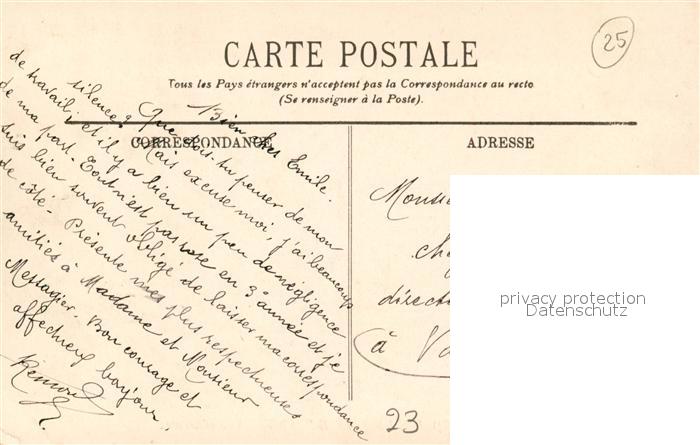 25
CARTE POSTALE
Tous les Pays étrangers n'acceptent pas la Correspondance au recto
(Se renseigner à la Poste).
CORRESPONDANCE
Bien cher Emile.
Que dois-tu penser de mon
silence? Mais excuse moi, j'ai beaucoup
de travail, et il y a bien un peu de négligence
de ma part. Tout n'est pas rose en 3e année et je
suis bien souvent obligé de laisser ma correspondance
de côté. Présente mes plus respectueuses
amitiés à Madame et Monsieur
Messagier. Bon courage et
affectueux bonjour.
ADRESSE
Monsie
che
direct
à Va
privacy protection
Datenschutz
23